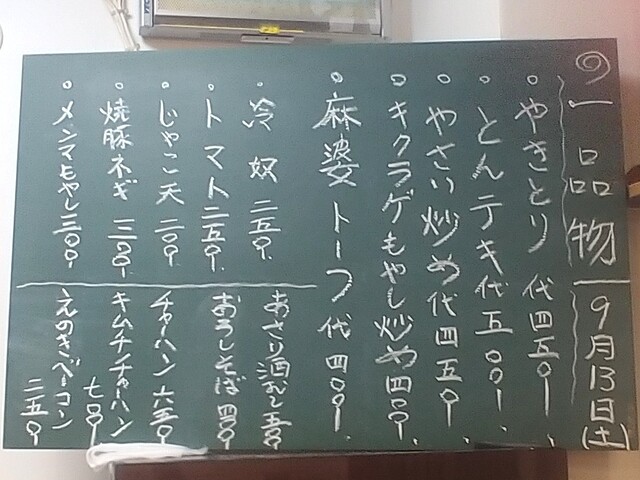 ◎一品物 9月13日(土)
・やきとり 代四五〇ー、
・とんテキ 代五〇〇ー、
・やさい炒め 代四五〇ー、
・キクラゲもやし炒め 四〇〇ー、
・麻婆トーフ 代四〇〇ー、
・冷奴 二五〇ー、
・トマト 二五〇ー、
・じゃこ天 二〇〇ー、
・焼豚ネギ 三〇〇ー、
・メンマもやし 三〇〇ー、
あさり酒むし 五〇〇ー
おろしそば 四〇〇ー
チャーハン 六五〇ー
キムチチャーハン 七〇〇ー
えのきベーコン 二五〇ー